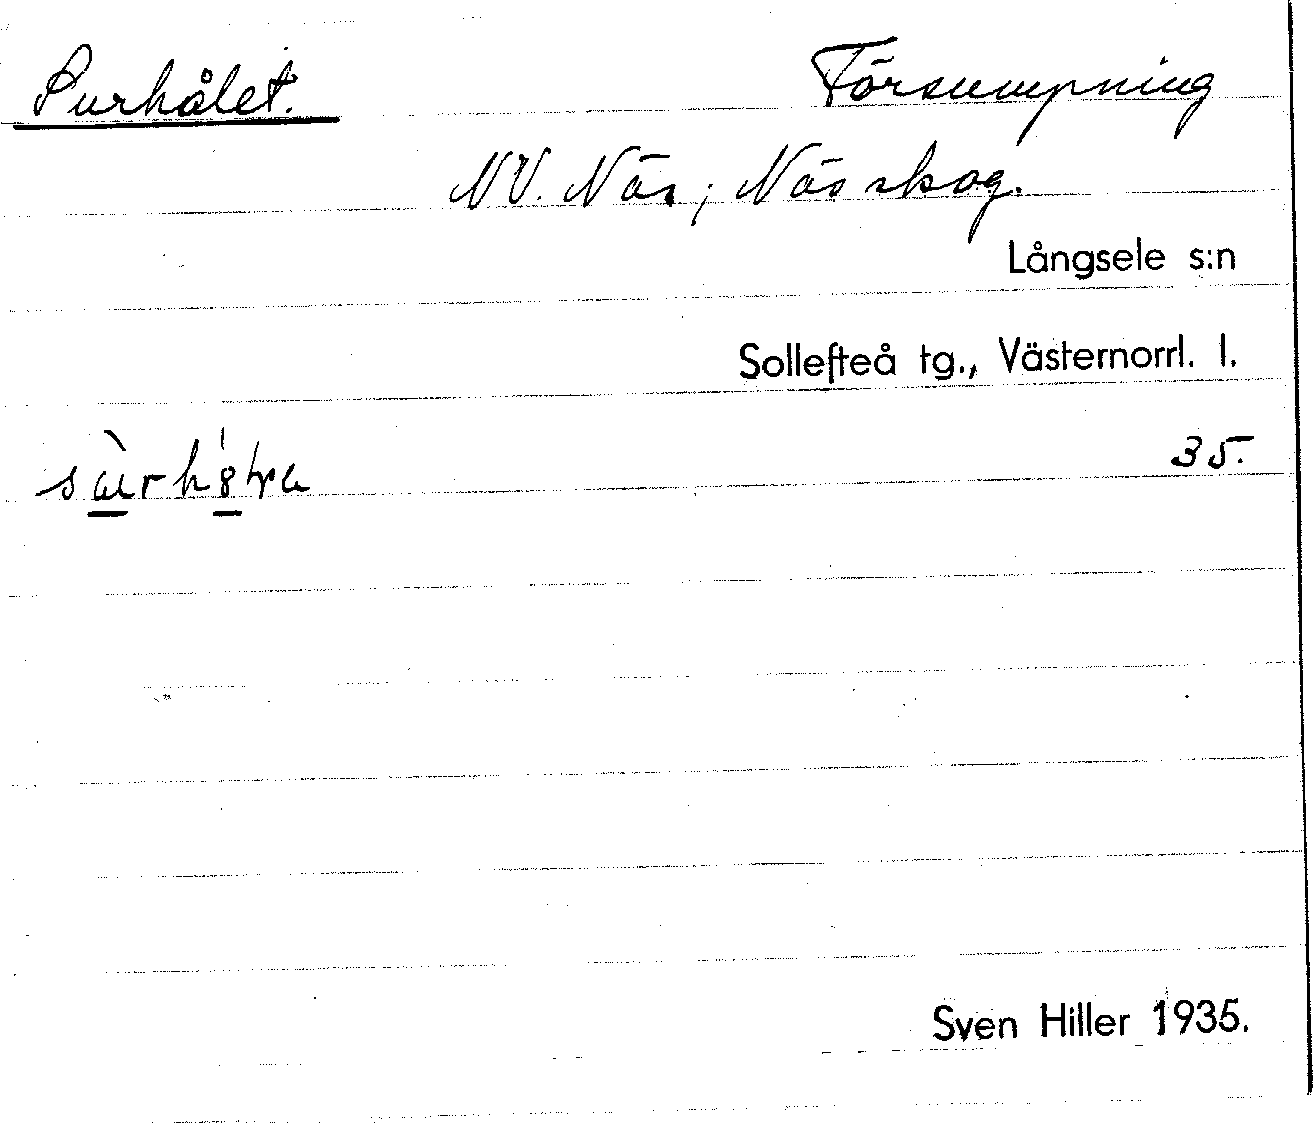 Surhålet. Försumpning
NV. Näs; Näs skog.
Långsele s:n
Sollefteå tg., Västernorrl. l.
35.
Sven Hiller 1935.